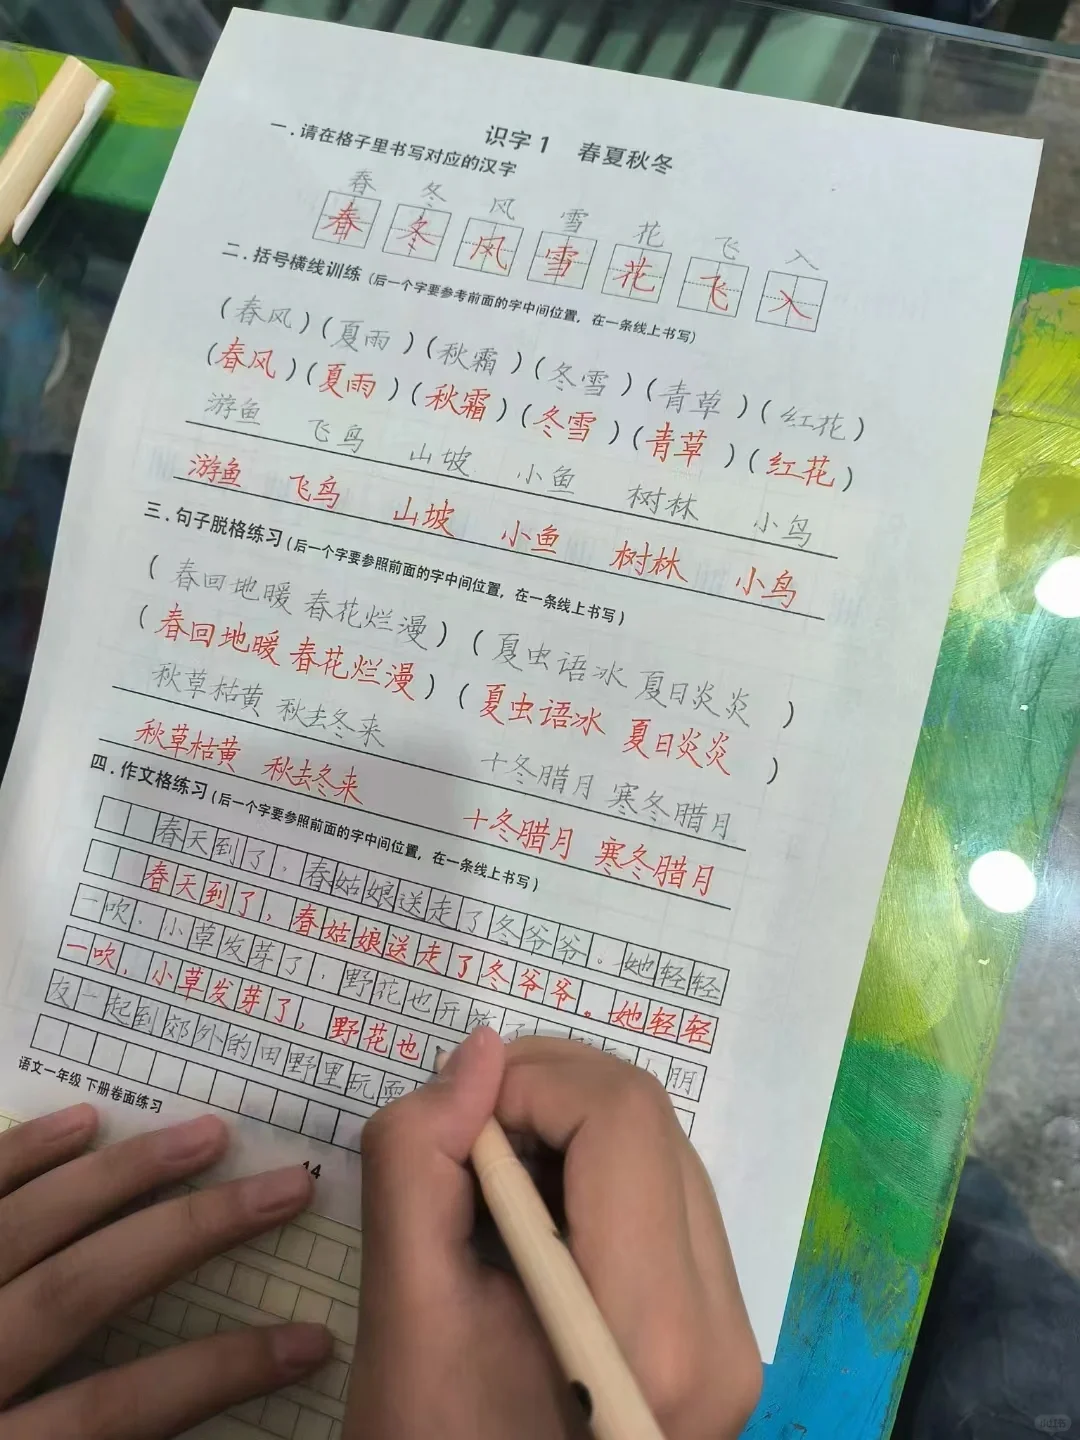 识字1 春夏秋冬
一.请在格子里书写对应的汉字
春 冬 风 雪 花 飞 入
春 冬 风 雪 花 飞 入
二.括号横线训练(后一个字要参考前面的字中间位置，在一条线上书写)
(春风)(夏雨)(秋霜)(冬雪)(青草)(红花)
(春风)(夏雨)(秋霜)(冬雪)(青草)(红花)
游鱼 飞鸟 山坡 小鱼 树林 小鸟
游鱼 飞鸟 山坡 小鱼 树林 小鸟
三.句子脱格练习(后一个字要参照前面的字中间位置，在一条线上书写)
(春回地暖 春花烂漫)(夏虫语冰 夏日炎炎)
(春回地暖 春花烂漫)(夏虫语冰 夏日炎炎)
秋草枯黄 秋去冬来 十冬腊月 寒冬腊月
秋草枯黄 秋去冬来 十冬腊月 寒冬腊月
四.作文格练习(后一个字要参照前面的字中间位置，在一条线上书写)
春天到了，春姑娘送走了冬爷爷。她轻轻
春天到了，春姑娘送走了冬爷爷。她轻轻
一吹，小草发芽了，野花也开放了 小朋
一吹，小草发芽了，野花也
友一起到郊外的田野里玩耍
语文一年级 下册卷面练习
14